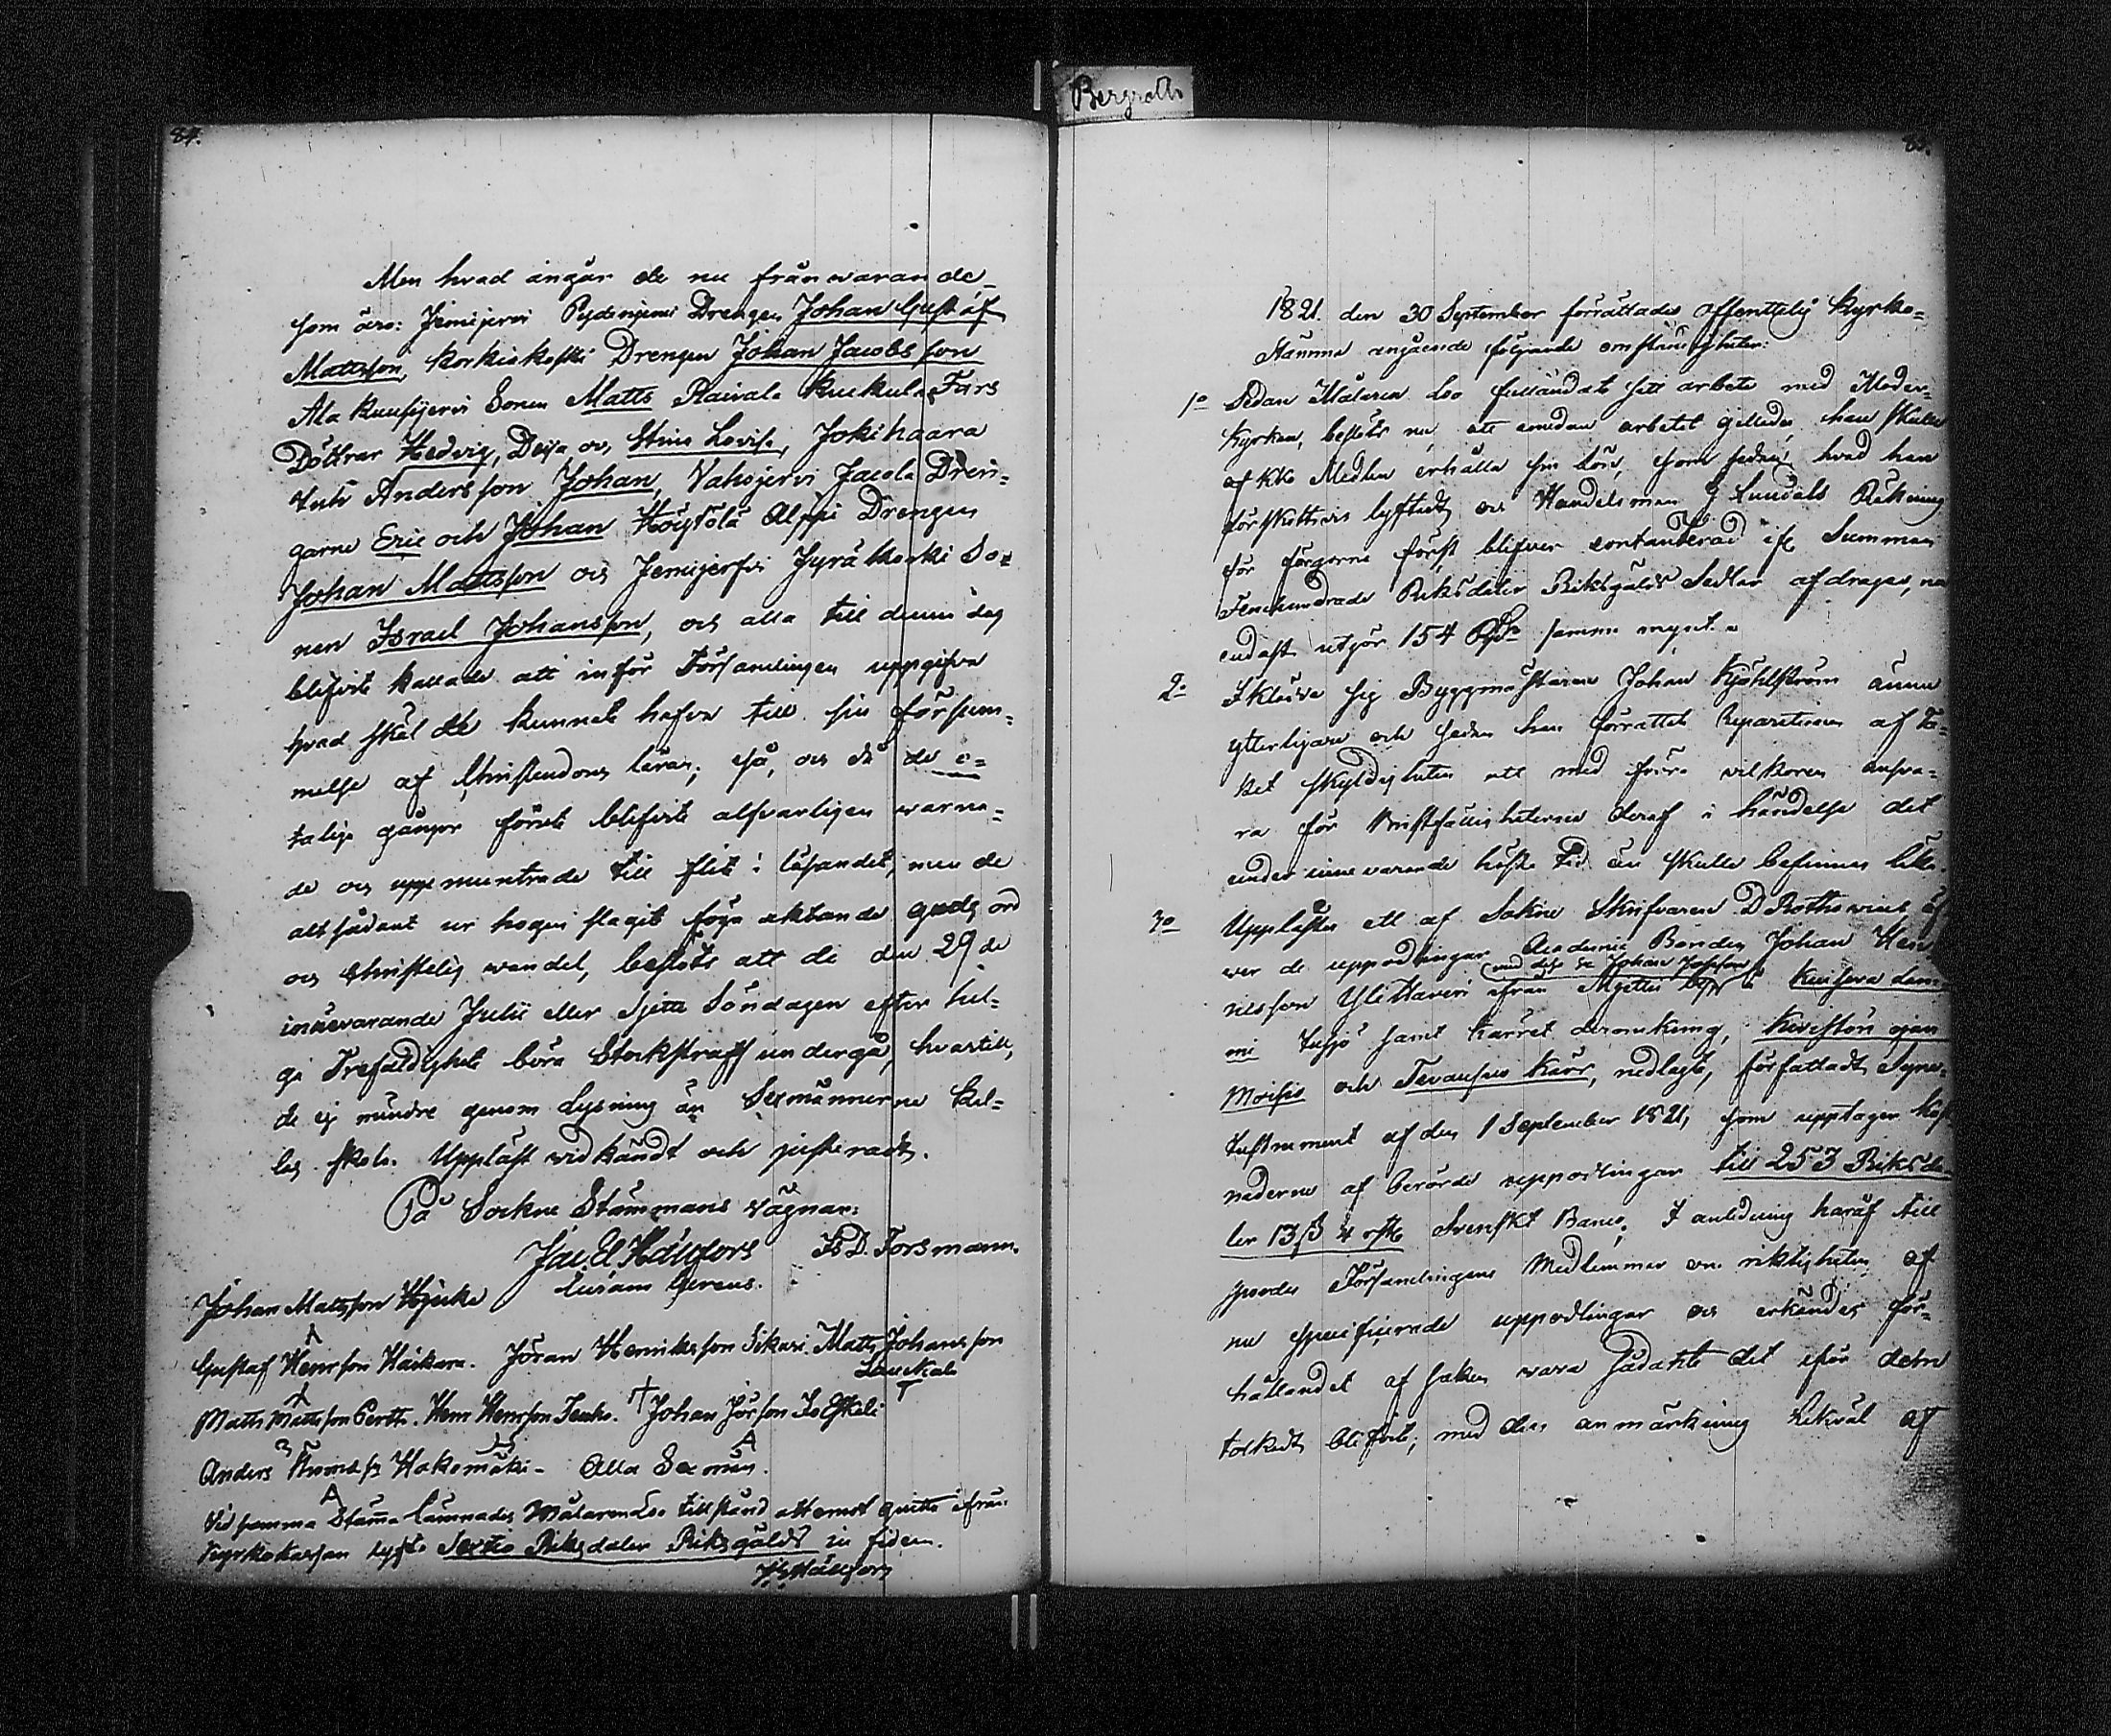 Bergroth
84.
Men hvad angår de nu frånwarande
som äro: Jemijervi Pydenjemi Drengen Johan Gustaf
Mattsson, Korkiakoski Drengen Johan Jacobsson
Ala Kuusjervi Sonen Matts Raivala Kuckula Fars
Döttrar Hedvig, Deya och Stina Lovisa, Jokihaara
Inh Andersson Johan, Vahojervi Jacola Dren-
garne Eric och Johan Höytölä Alppi Drengen
Johan Mattsson och Jemijerfvi Jyrä koski So-
nen Israel Johansson, och alla till denne dag
blifvit kallade att inför Församlingen uppgifva
hvad skäl de kunnat hafva till sin försum-
melse af Christendoms läran; så, och då de o-
talige gånger förut blifvit alfvarligen warna-
de och uppmuntrade till flit i läsandet, men de
alt sådant ur hogen slagit föga aktande Guds ord
och Christelig wandel, beslöts att de den 29 de
innevarande Julii eller Sjette Söndagen efter hel-
ga Trefaldighets böra Stockstraff undergå, hvartill
de ej mindre genom Lysning än Sexmännerne kal-
las skola. Uppläst widkändt och justeradt.
På Sockne Stämmans vägnar:
Jac. El. Hällfors Is D. Forsmann.
Curam Gerens.
Johan Mattsson Hjuka
Gustaf Henrsson Häikara. Jöran Henriksson Sikuri. Matts Johansson
Matts Mattsson Pertti. Henr Henrsson Jenho. Johan Jörsson Isoeskeli
Anders Thomæss Hakomäki. Alla Sexmän.
Vid samma Stämma lämnades Målaren Loo tillstånd att emot qvitto ifrån
Kyrkokassan lyfta Sextio Riksdaler Riksgälds in fidem.
J. E. Hällfors
85.
1821. den 30 September förrättades offenttelig Kyrko-
Stämma angående följande omständigheter:
1o Sedan Målaren Loo fulländat sitt arbete med Moder-
Kyrkan, beslöts nu, att emedan arbetet gillades, han skulle
af Kko Medlen erhålla sin lön, som sedan hvad han
förskottsvis lyftadt och Handelsman J Lundahls Räkning
för färgorne först blifver contanterad ifr Summan
Femhundrade Riksdaler Riksgälds Sedlar afdrages, nu
endast utgör 154 Rdr samma mynt.
2o Iklädde sig Byggmästaren Johan Kjöhlström ännu
ytterligare och sedan han förrättat Reparationen af Ta-
ket skyldigheten att med förra vilkoren ansva-
ra för bristfälligheterne deraf i händelse det
under innevarande höste tid än skulle befinnas läka.
3o Upplästes ett af Sokne Skrifvaren D Rothovius öf
ver de uppodlingar Academie Bonden Johan Hen
med dess son Johan Josefsson
ricsson Yli Haveri ifrån Myttis by i Kuisera lam-
mi Insjö samt kärret deromkring, Kiviston ojan
Moisio och Tevansuo Kärr, nedlagt, författadt Syne-
Instrument af den 1 September 1821, som upptager Kost
naderne af berörde uppodlingar till 253 Riksda-
ler 13 ß 4 rst Svenskt Banco. I anledning häraf till
spordes Församlingens Medlemmar om riktigheten af
nu specificerade uppodlingar och erkändes för-
hållandet af saken wara sådant det ifrån
torkadt blifvit; med den anmärkning likväl af